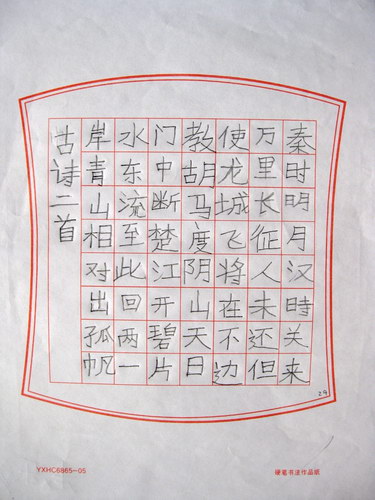 秦时明月汉時关来
万里长征人未还但
使龙城飞将在不边
教胡马度阴山天日
门中断楚江开碧片
水东流至此回两一
岸青山相对出孤帆
古诗二首
24
YXHC6865-05
硬笔书法作品纸